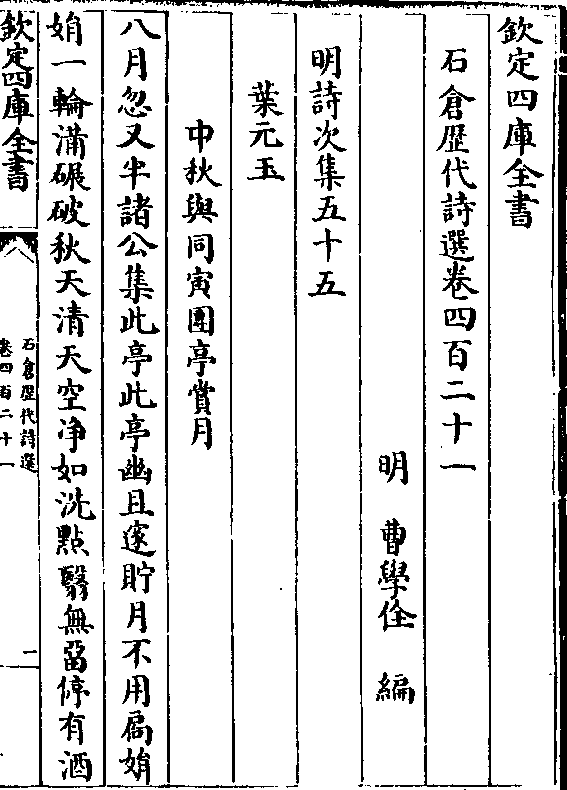 欽定四庫全書
石倉歴代詩選卷四百二十一
明 曹學佺 編
明詩次集五十五
葉元玉
中秋與同寅團亭賞月
八月忽又半諸公集此亭此亭幽且邃貯月不用扃娟
娟一輪滿碾破秋天清天空净如洗點翳無畱停有酒
欽定四庫全書
石倉歴代詩選
卷四百二十一
一